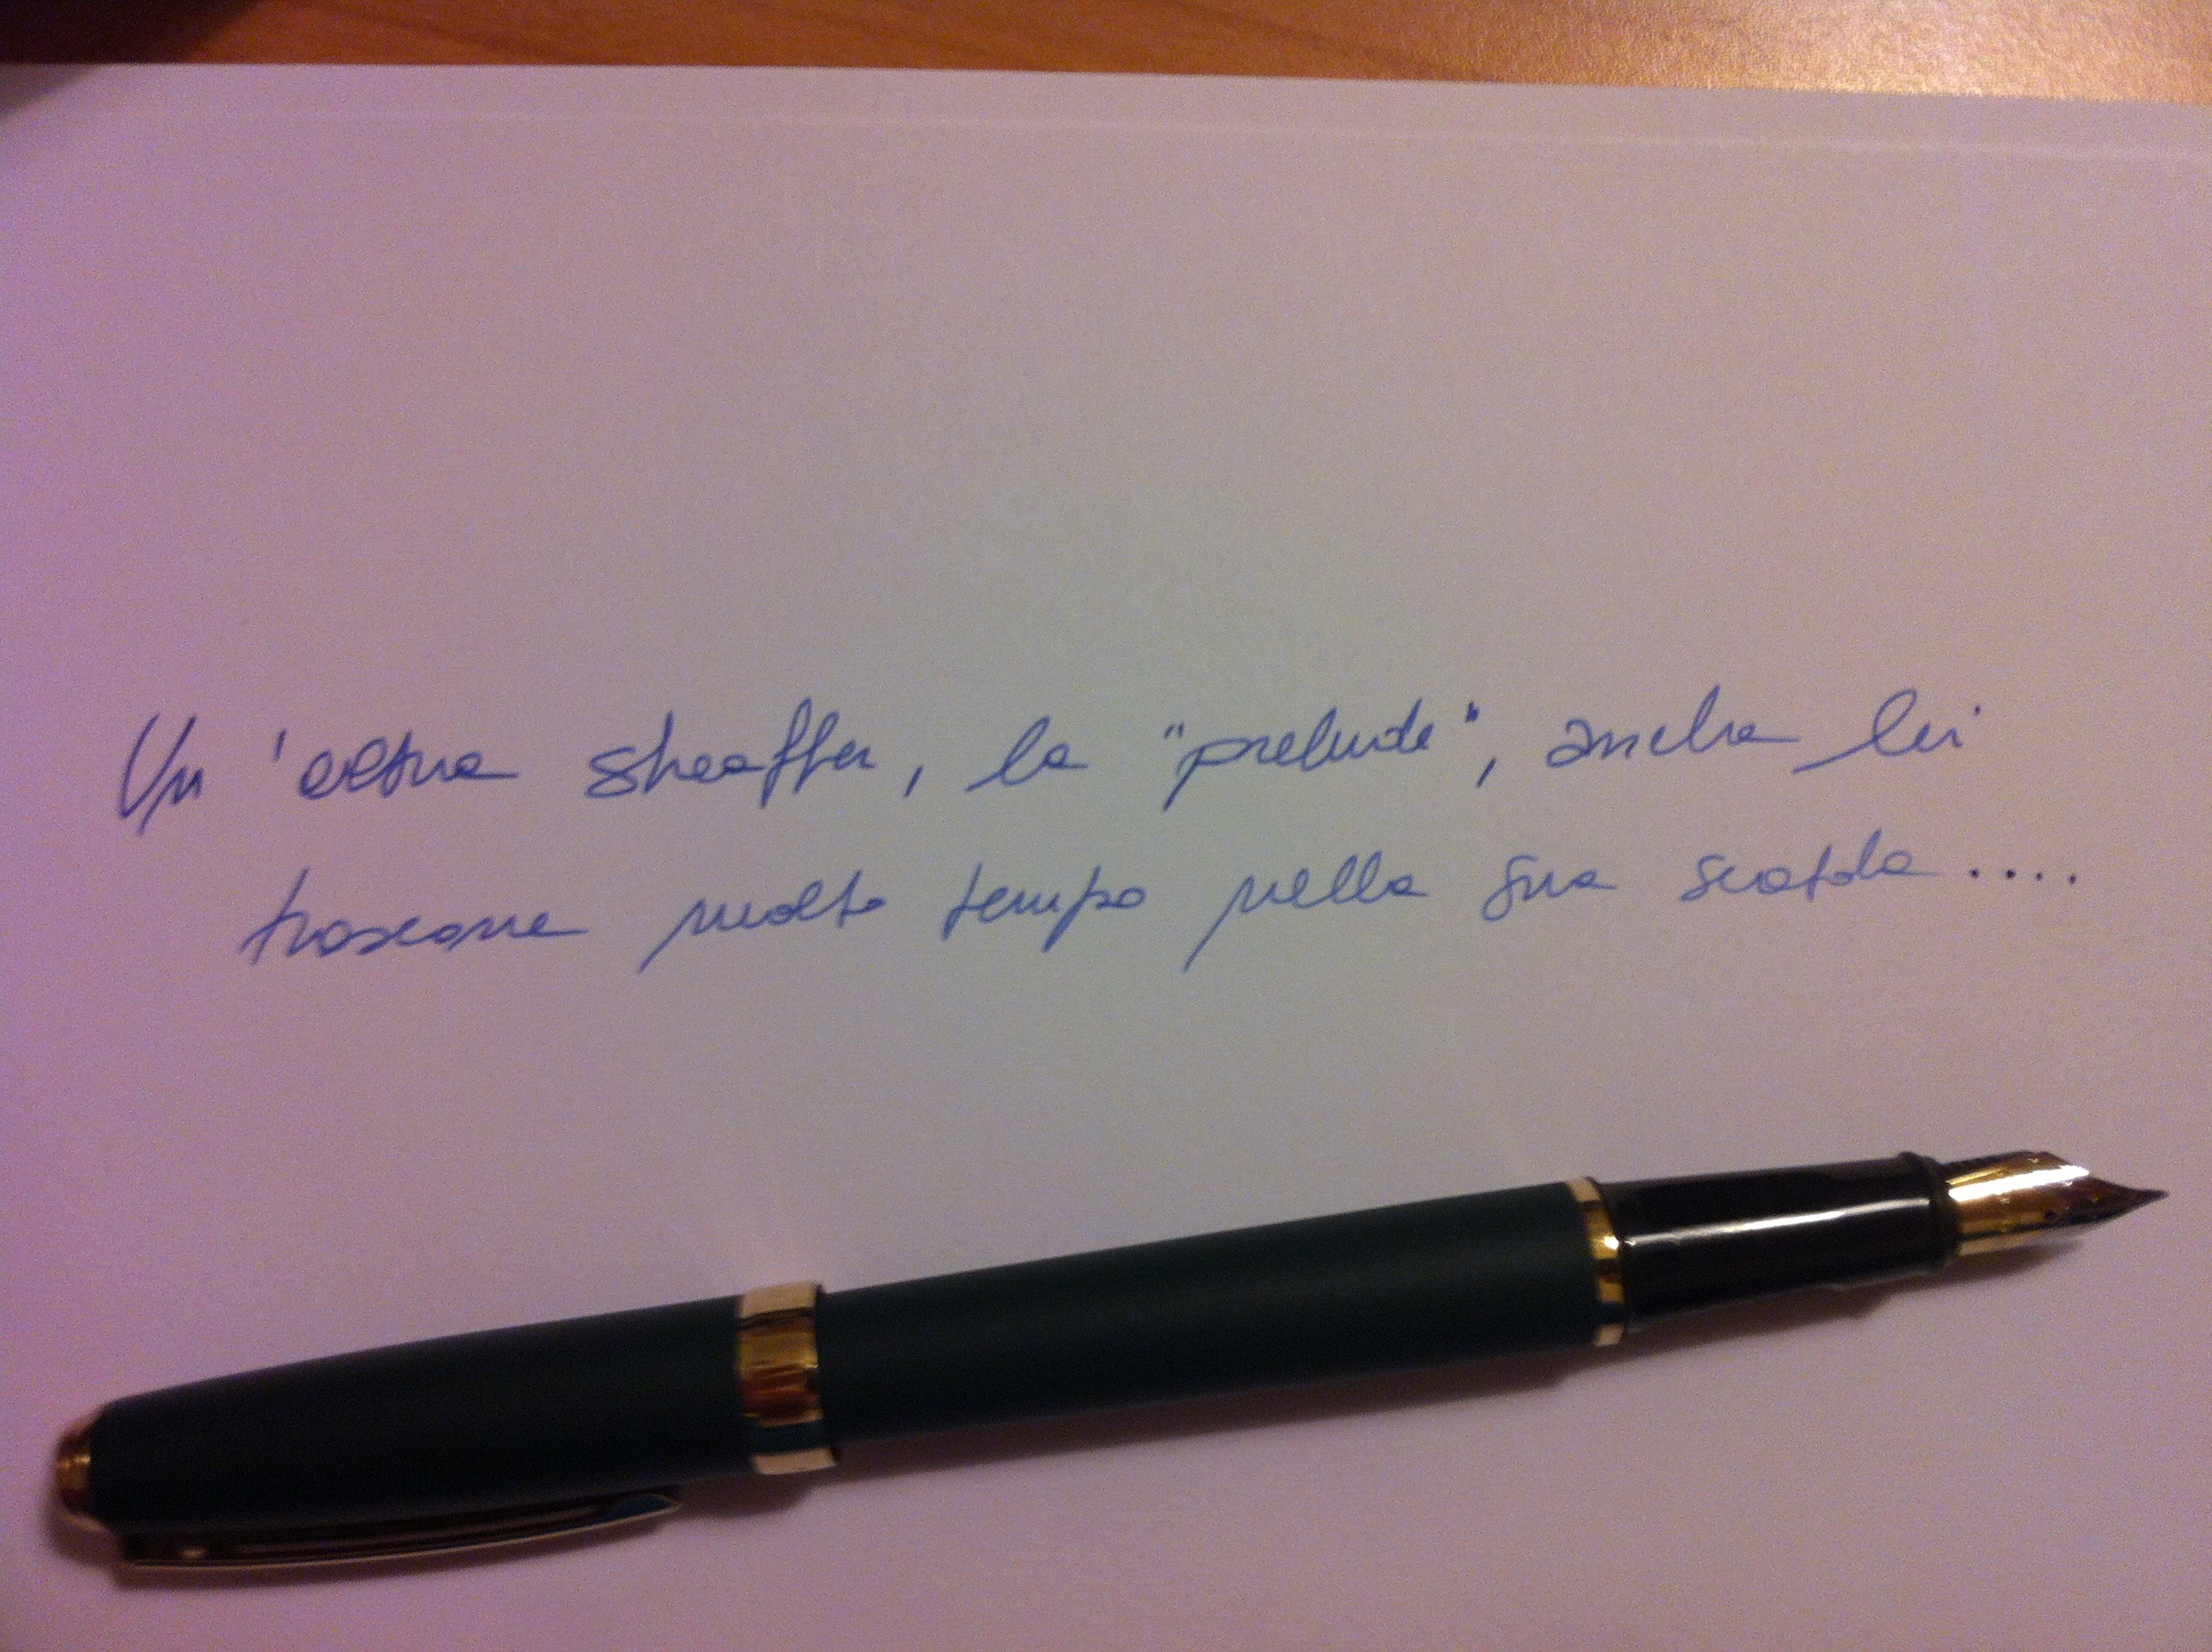 Un'altra sheaffer, la "prelude", anche lei
trascorre molto tempo nella sua scatola....